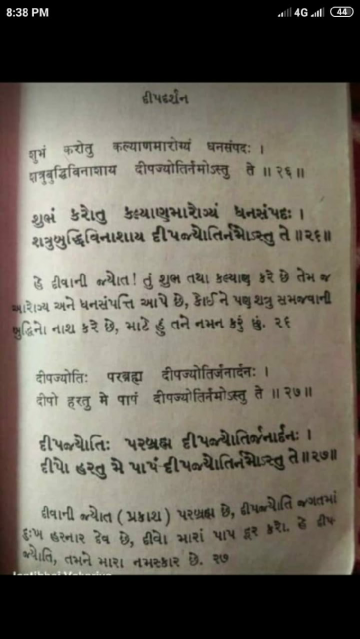 8:38 PM
4G
44
દીપદર્શન
शुभं करोतु कल्याणमारोग्यं धनसंपदः ।
शत्रुबुद्धिविनाशाय दीपज्योतिर्नमोऽस्तु ते ॥२६॥
શુભં કરોતુ કલ્યાણમારોગ્યં ધનસંપદઃ ।
શત્રુબુદ્ધિવિનાશાય દીપજ્યોતિર્નમોઽસ્તુ તે ॥૨૬॥
હે દીવાની જ્યોત! તું શુભ તથા કલ્યાણ કરે છે તેમ જ
આરોગ્ય અને ધનસંપત્તિ આપે છે, કોઈ ને પણ શત્રુ સમજવાની
બુદ્ધિનો નાશ કરે છે, માટે હું તને નમન કરું છું. ૨૬
दीपज्योतिः परब्रह्म दीपज्योतिर्जनार्दनः ।
दीपो हरतु मे पापं दीपज्योतिर्नमोऽस्तु ते ॥२७॥
દીપજ્યોતિઃ પરબ્રહ્મ દીપજ્યોતિર્જનાર્દનઃ ।
દીપો હરતુ મે પાપં દીપજ્યોતિર્નમોઽસ્તુ તે ॥૨૭॥
દીવાની જ્યોત (પ્રકાશ) પરબ્રહ્મ છે, દીપજ્યોતિ જગતમાં
દુઃખ હરનાર દેવ છે, દીવો મારાં પાપ દૂર કરો. હે દીપ
જ્યોતિ, તમને મારા નમસ્કાર છે. ૨૭